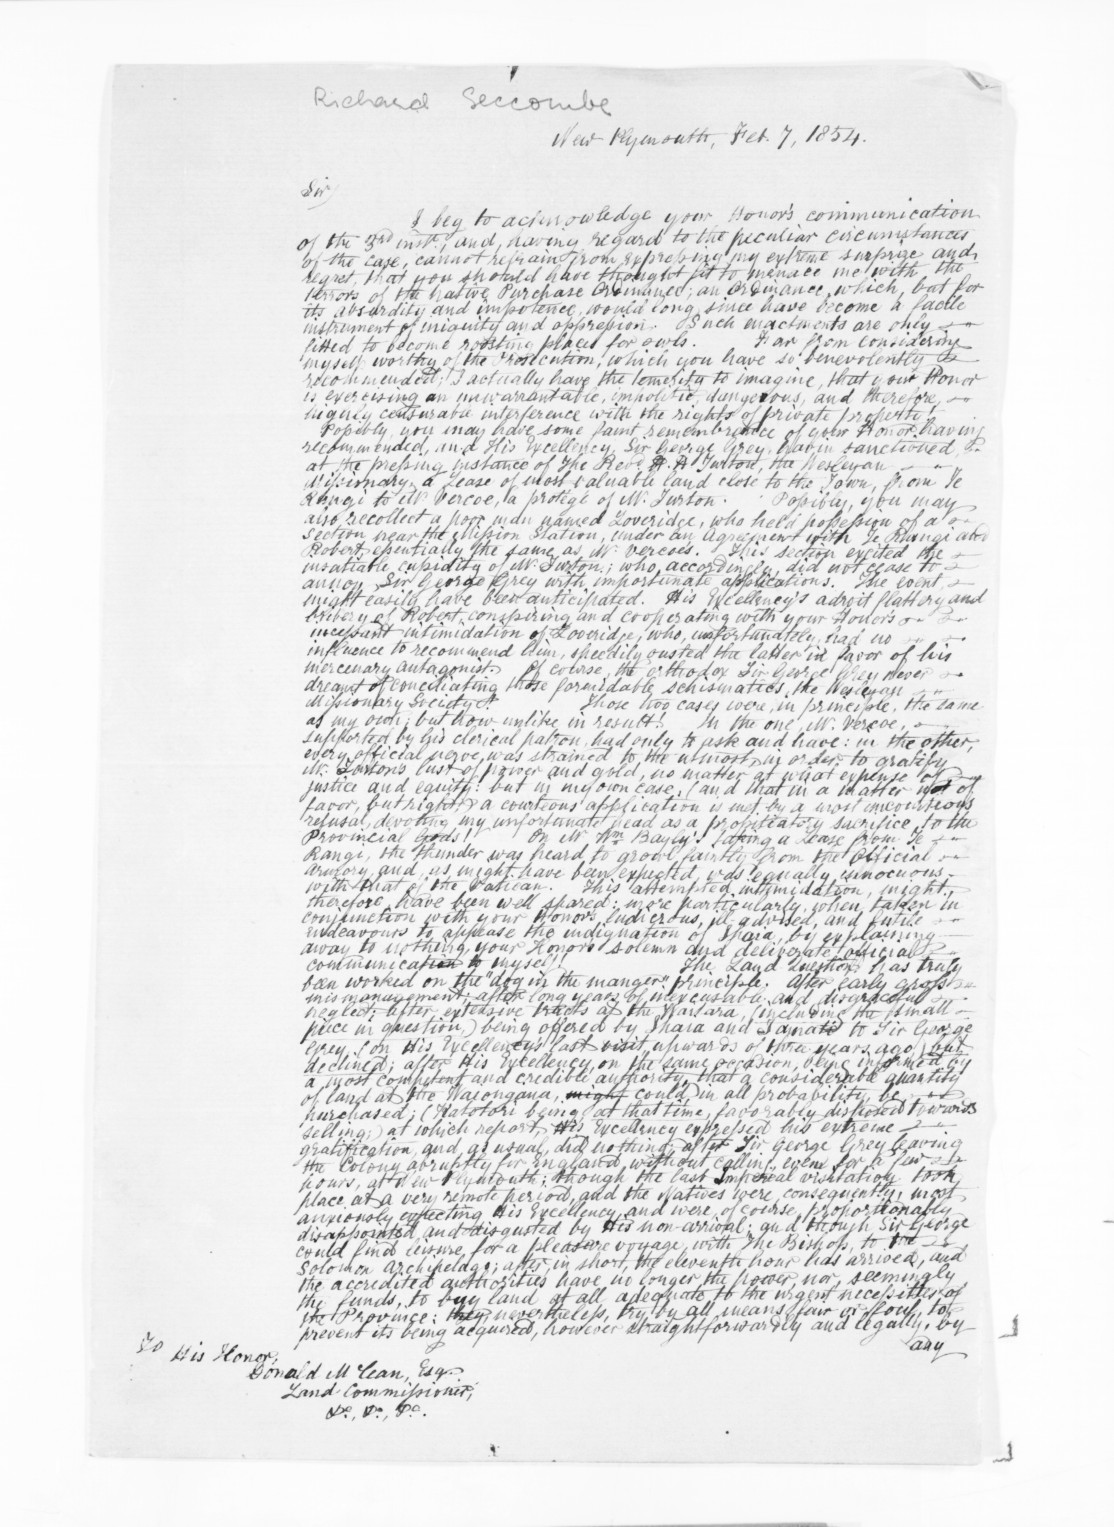 Richard Seccombe
New Plymouth, Feb. 7, 1854.
Sir,
I beg to acknowledge your Honor's communication
of the 3rd inst., and, having regard to the peculiar circumstances
of the case, cannot refrain from expressing my extreme surprize and
regret, that you should have thought fit to menace me with the
terrors of the Native Purchase Ordinance; an Ordinance, which, but for
its absurdity and impotence, would long since have become a facile
instrument of iniquity and oppression. Such enactments are only
fitted to become roosting places for owls. Far from considering
myself worthy of the Prosecution, which you have so benevolently
recommended, I actually have the temerity to imagine, that your Honor
is exercising an unwarrantable, impolitic, dangerous, and therefore,
highly censurable interference with the rights of private property!
Possibly, you may have some faint remembrance of your Honor having
recommended, and His Excellency, Sir George Grey, havin sanctioned,
at the pressing instance of The Revd. H. H. Turton, the Wesleyan
Missionary, a Lease of most valuable land close to the Town, from Te
Rangi to Mr. Vercoe, a protegé of Mr. Turton. Possibly, you may
also recollect a poor man named Loveridge, who held possession of a
Section near the Mission Station, under an Agreement with Te Rangi and
Robert, essentially the same as Mr. Vercoe's. This section excited the
insatiable cupidity of Mr. Turton; who, accordingly, did not cease to
annoy Sir George Grey with importunate applications. The event
might easily have been anticipated. His Excellency's adroit flattery and
bribery of Robert, conspiring and cooperating with your Honor's
incessant intimidation of Loveridge, who, unfortunately, had no
influence to recommend him, speedily ousted the latter in favor of his
mercenary antagonist. Of course, the orthodox Sir George Grey never
dreamt of conciliating those formidable schismatics, the Wesleyan
Missionary Society! Those two cases were, in principle, the same
as my own; but how unlike in result! In the one, Mr. Vercoe,
supported by his clerical patron, had only to ask and have: in the other,
every official nerve was strained to the utmost, in order to gratify
Mr. Turton's lust of power and gold, no matter at what expense of
justice and equity: but in my own case, (and that in a matter not of
favor, but right,) a courteous application is met by a most uncourteous
refusal, devoting my unfortunate head as a propitiatory sacrifice to the
Provincial Gods! On Mr. Wm. Bayly's taking a Lease from Te
Rangi, the thunder was heard to growl faintly from the Official
armory, and, as might have been expected, was equally innocuous
with that of the Vatican. This attempted intimidation, might,
therefore, have been well spared: more particularly, when taken in
conjunction with your Honor's ludicrous, ill-advised, and futile
endeavours to appease the indignation of Ihaia, by explaining
away to nothing, your Honor's solemn and deliberate official
communication to myself! The Land Question has truly
been worked on the "dog in the manger" principle. After early gross
mismanagement; after long years of inexcusable and disgraceful
neglect; after extensive tracts at the Waitara, (including the small
piece in question,) being offered by Ihaia and Tamati to Sir George
Grey, (on His Excellency's last visit upwards of three years ago) but
declined; after His Excellency, on the same occasion, being informed by
a most competent and credible authority, that a considerable quantity
of land at the Waiongana, might could in all probability, be
purchased; (Katotori being at that time, favorably disposed towards
selling;) at which report, His Excellency expressed his extreme
gratification, and, as usual, did nothing; after Sir George Grey leaving
the Colony abruptly for England, without calling, even for a few
hours, at New Plymouth; though the last Imperial visitation took
place at a very remote period, and the Natives were, consequently, most
anxiously expecting His Excellency, and were, of course, proportionably
disappointed and disgusted by His non-arrival; and though Sir George
could find leisure for a pleasure voyage, with The Bishop, to the
Solomon Archipelago; after, in short, the eleventh hour has arrived, and
the accredited authorities have no longer the power, nor, seemingly
the funds, to buy land at all adequate to the urgent necessities of
the Province: they, nevertheless, try by all means, fair or foul, to
prevent its being acquired, however straightforwardly and legally, by
any
To His Honor,
Donald McLean, Esq.
Land Commissioner,
&c., &c., &c.